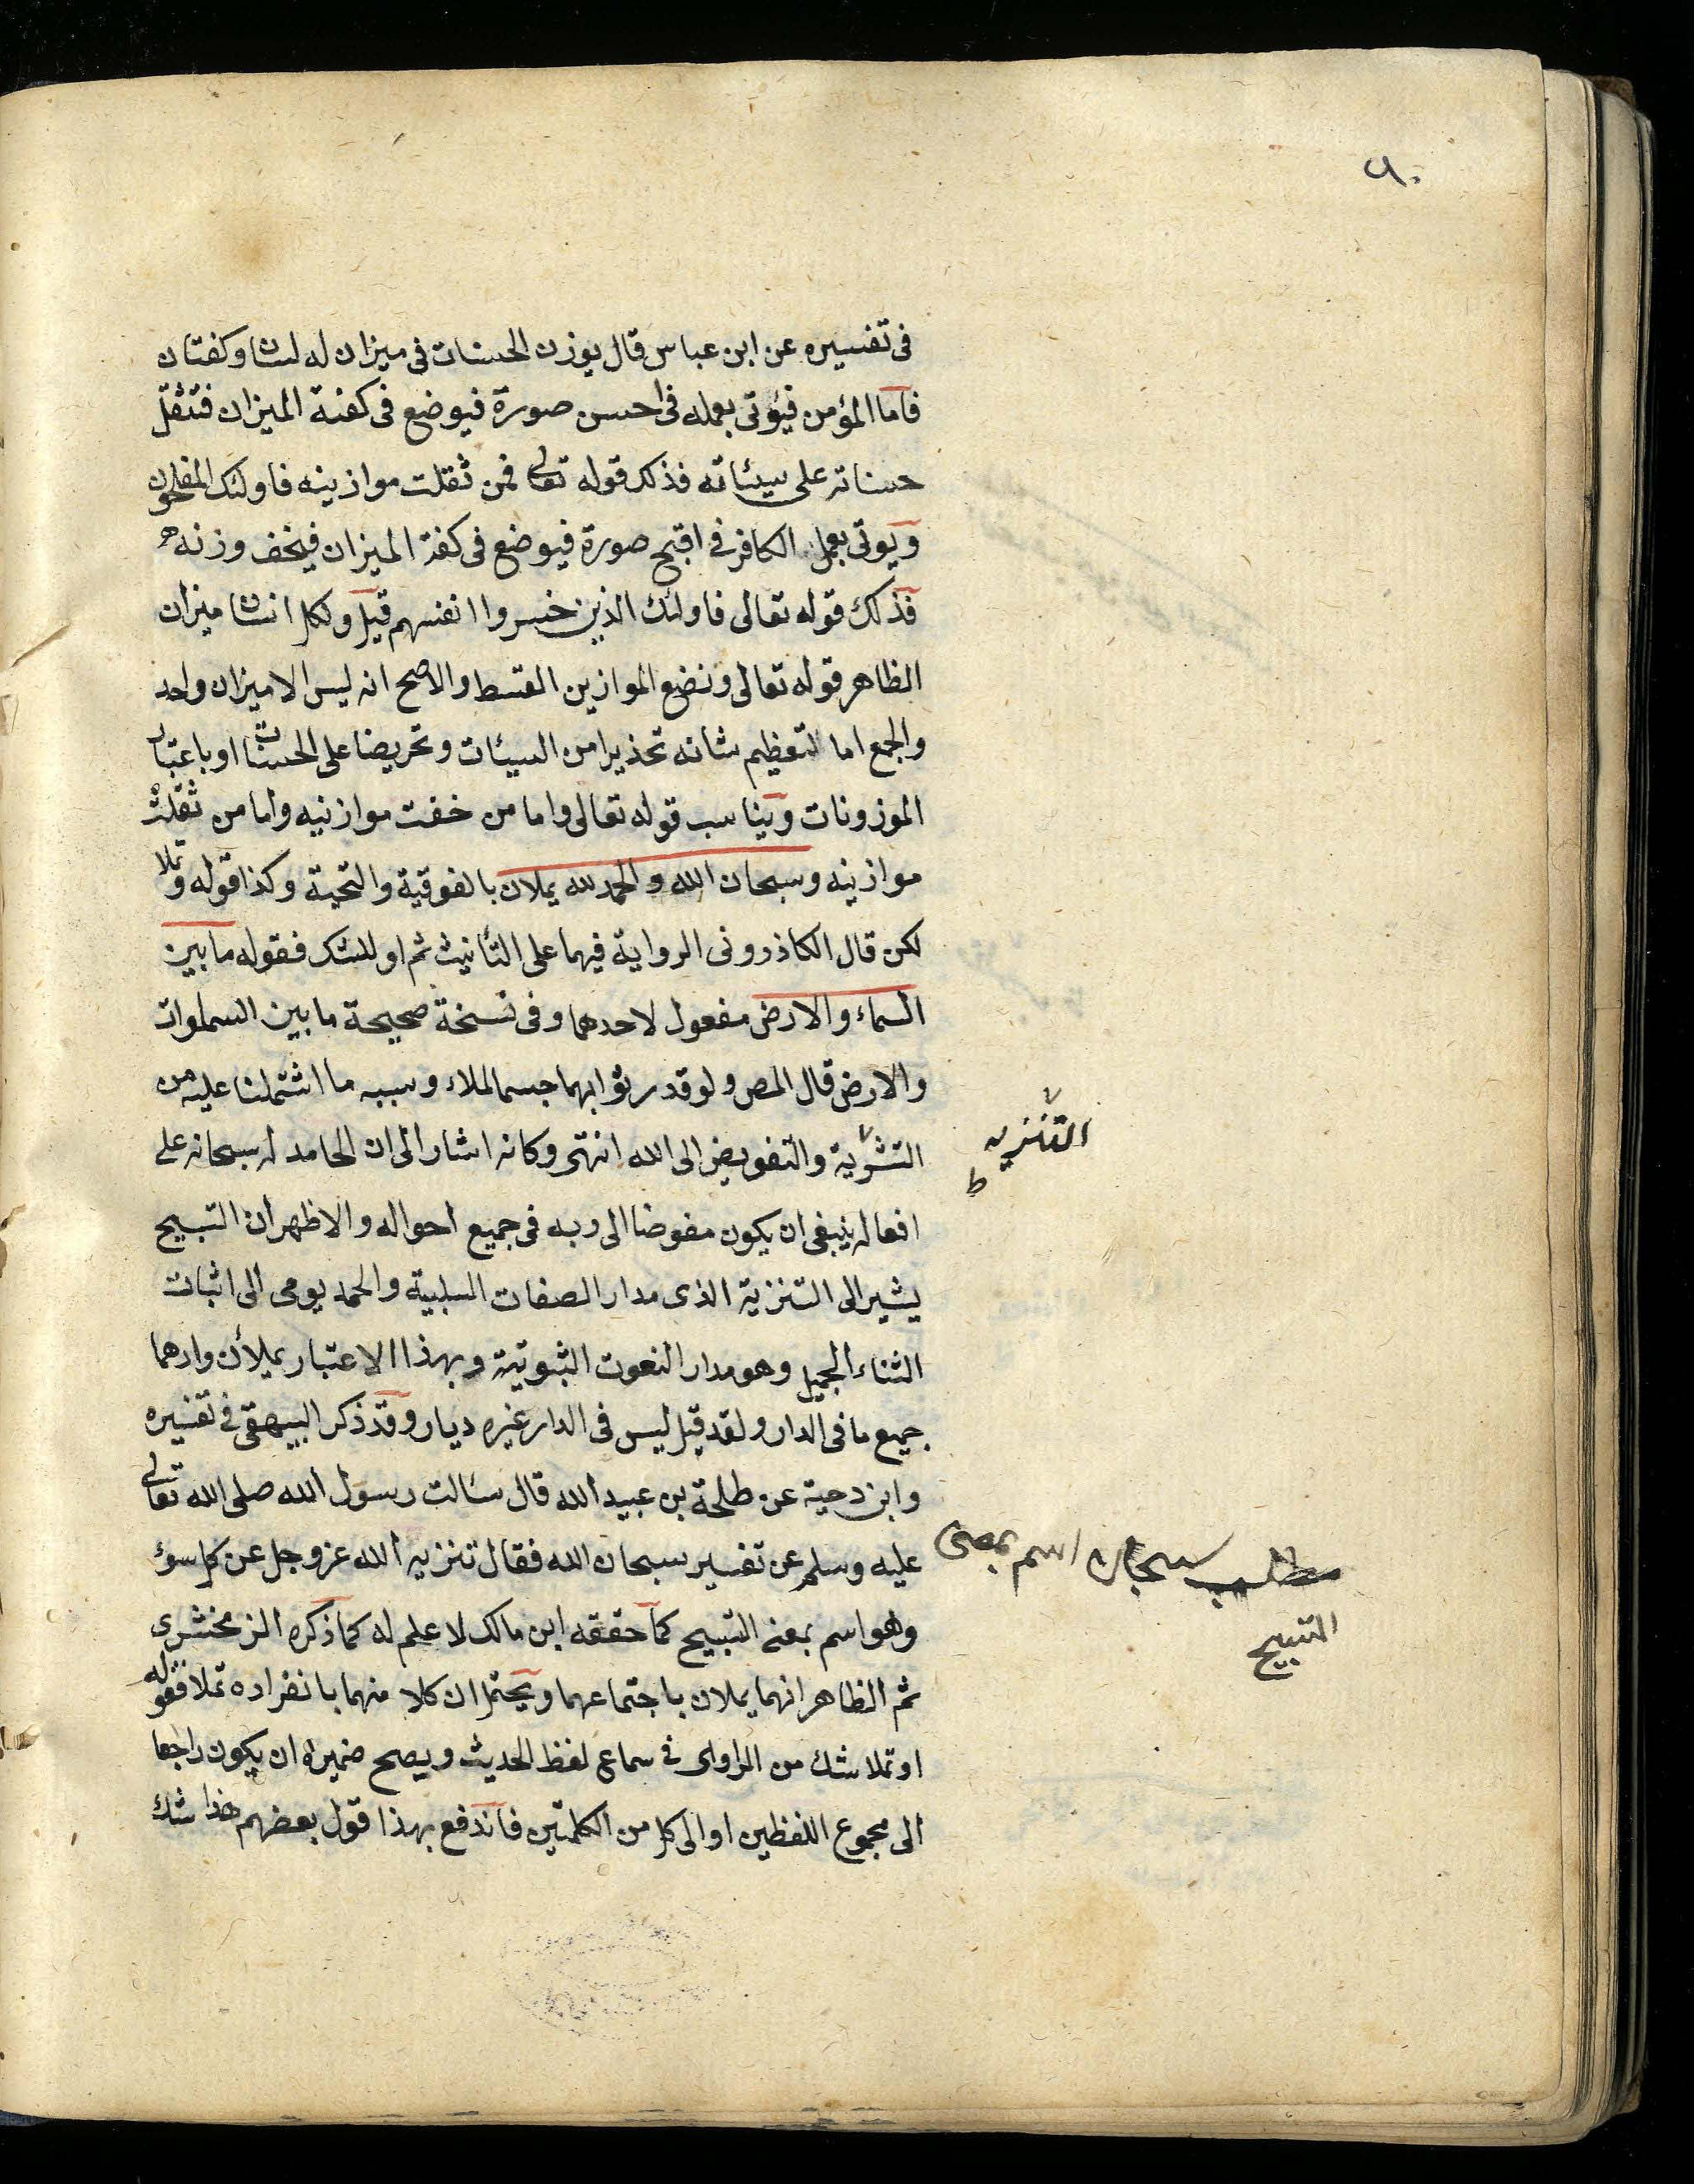 ٩٠
فى تفسيره عن ابن عباس قال يوزن الحسنات فى ميزان له لسان وكفتان
فاما المؤمن فيؤتى بعمله فى احسن صورة فيوضع فى كفة الميزان فتثقل
حسناته على سيئاته فذلك قوله تعالى فمن ثقلت موازينه فاولئك المفلحون
ويوتى بعمل الكافر فى اقبح صورة فيوضع فى كفة الميزان فيخف وزنه
فذلك قوله تعالى فاولئك الذين خسروا انفسهم قيل ولكل انسان ميزان
الظاهر قوله تعالى ونضع الموازين القسط والاصح انه ليس الا ميزان واحد
والجمع اما لتعظيم شانه تحذيرا من السيئات وتحريضا على الحسنات او باعتبار
الموزونات ويناسب قوله تعالى واما من خفت موازنيه واما من ثقلت
موازنيه وسبحان الله والحمد لله يملان بالفوقية والتحية وكذا قوله وتملا
لكن قال الكاذرونى الرواية فيهما على التأنيث ثم او للشك فقوله ما بين
السماء والارض مفعول لاحدهما وفى نسخة صحيحة ما بين السموات
والارض قال المص ولو قدر ثوابهما جسما لملاء وسببه ما اشتملنا عليه من
التشرية والتفويض الى الله انتهى وكانه اشار الى ان الحامد له سبحانه على
التنزيه
ط
افعاله ينبغى ان يكون مفوضا الى ربه فى جميع احواله والاظهر ان التسبيح
يشير الى التنزية الذى مدار الصفات السلبية والحمد يومى الى اثبات
الثناء الجميل وهو مدار النعوت الثبوتية وبهذا الاعتبار يملأن وارهما
جميع ما فى الدار ولقد قيل ليس فى الدار غيره ديار وقد ذكر البيهقى فى تفسيره
وابن دحية عن طلحة بن عبيد الله قال سئالت رسول الله صلى الله تعالى
عليه وسلم عن تفسير سبحان الله فقال تنزيه الله عز وجل عن كل سوء
مطلب سبحان اسم بمعنى
التسبيح
وهو اسم بمعنى التسبيح كما حققه ابن مالك لا علم له كما ذكره الزمخشرى
ثم الظاهر انهما يملان باجتماعهما ويحتمل ان كلا منهما بانفراده تملا فقوله
او تملا شك من الراوى فى سماع لفظ الحديث ويصح ضميره ان يكون راجعا
الى مجموع اللفظين او الى كل من الكلمتين فاندفع بهذا قول بعضهم هذا شك